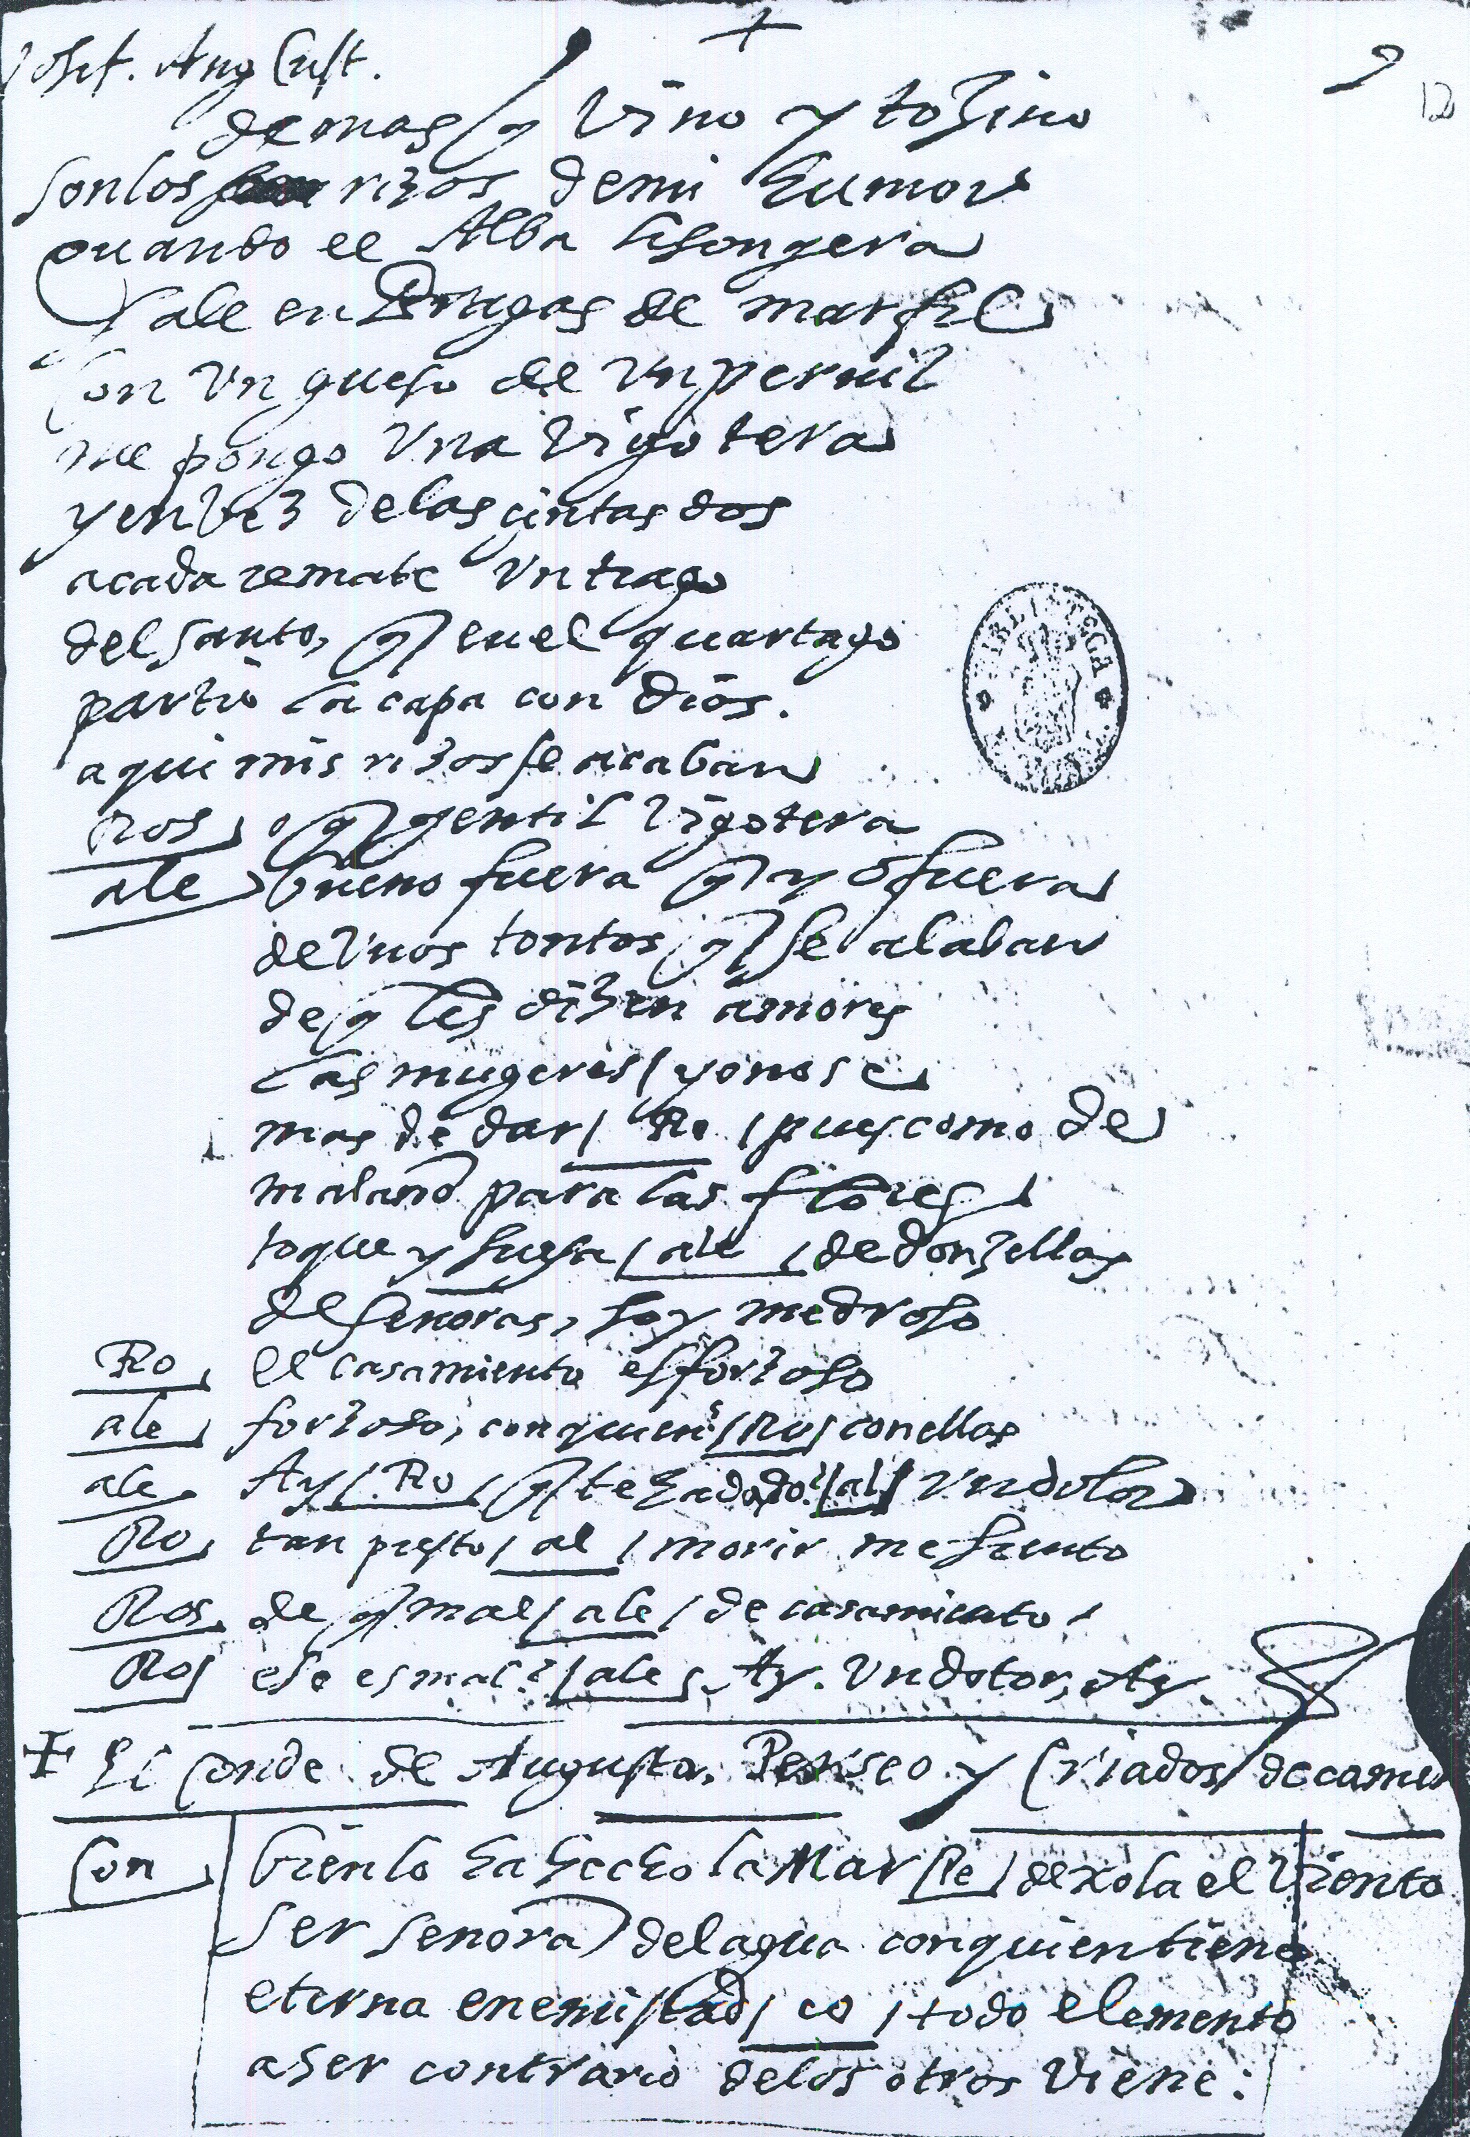 Josef. Ang Cust.
9
12
demas q Vino y tozino
son los rizos demi humor
quando el Alba lisongera
sale en Bragas de marfil
con Vn gueso de Vn pernil
me pongo Vna Vigotera
y en vez de las cintas dos
a cada remate Vn trago
del santo, q en el quartago
partio la capa con Dios.
aqui mis rizos se acaban
Ros o q gentil Vigotera
ale bueno fuera q yo fuera
de Vnos tontos q se alaban
de q les dizen amores
las mugeres / yo no se
mas de dar / Ro / pues como de
mala no para las flores
toque y huya / ale / de donzellas
de señoras, soy medroso
Ro el casamiento es forzoso
ale forzoso, con quien? / Ro / con ellas
ale Ay / Ro / q te ha dado? / al / Vn dolor
Ro tan presto / al / morir me siento
Ros de q mal / ale / de casamiento
Ros ese es mal? / ale / Ay. Vn dotor, Ay.
El Conde de Augusta. Perseo y Criados de camer
Con bien lo ha hecho la Mar / Pe / dexola el Viento
ser señora del agua con quien tiene
eterna enemistad / co / todo elemento
a ser contrario de los otros Viene:
BIBLIOTECA